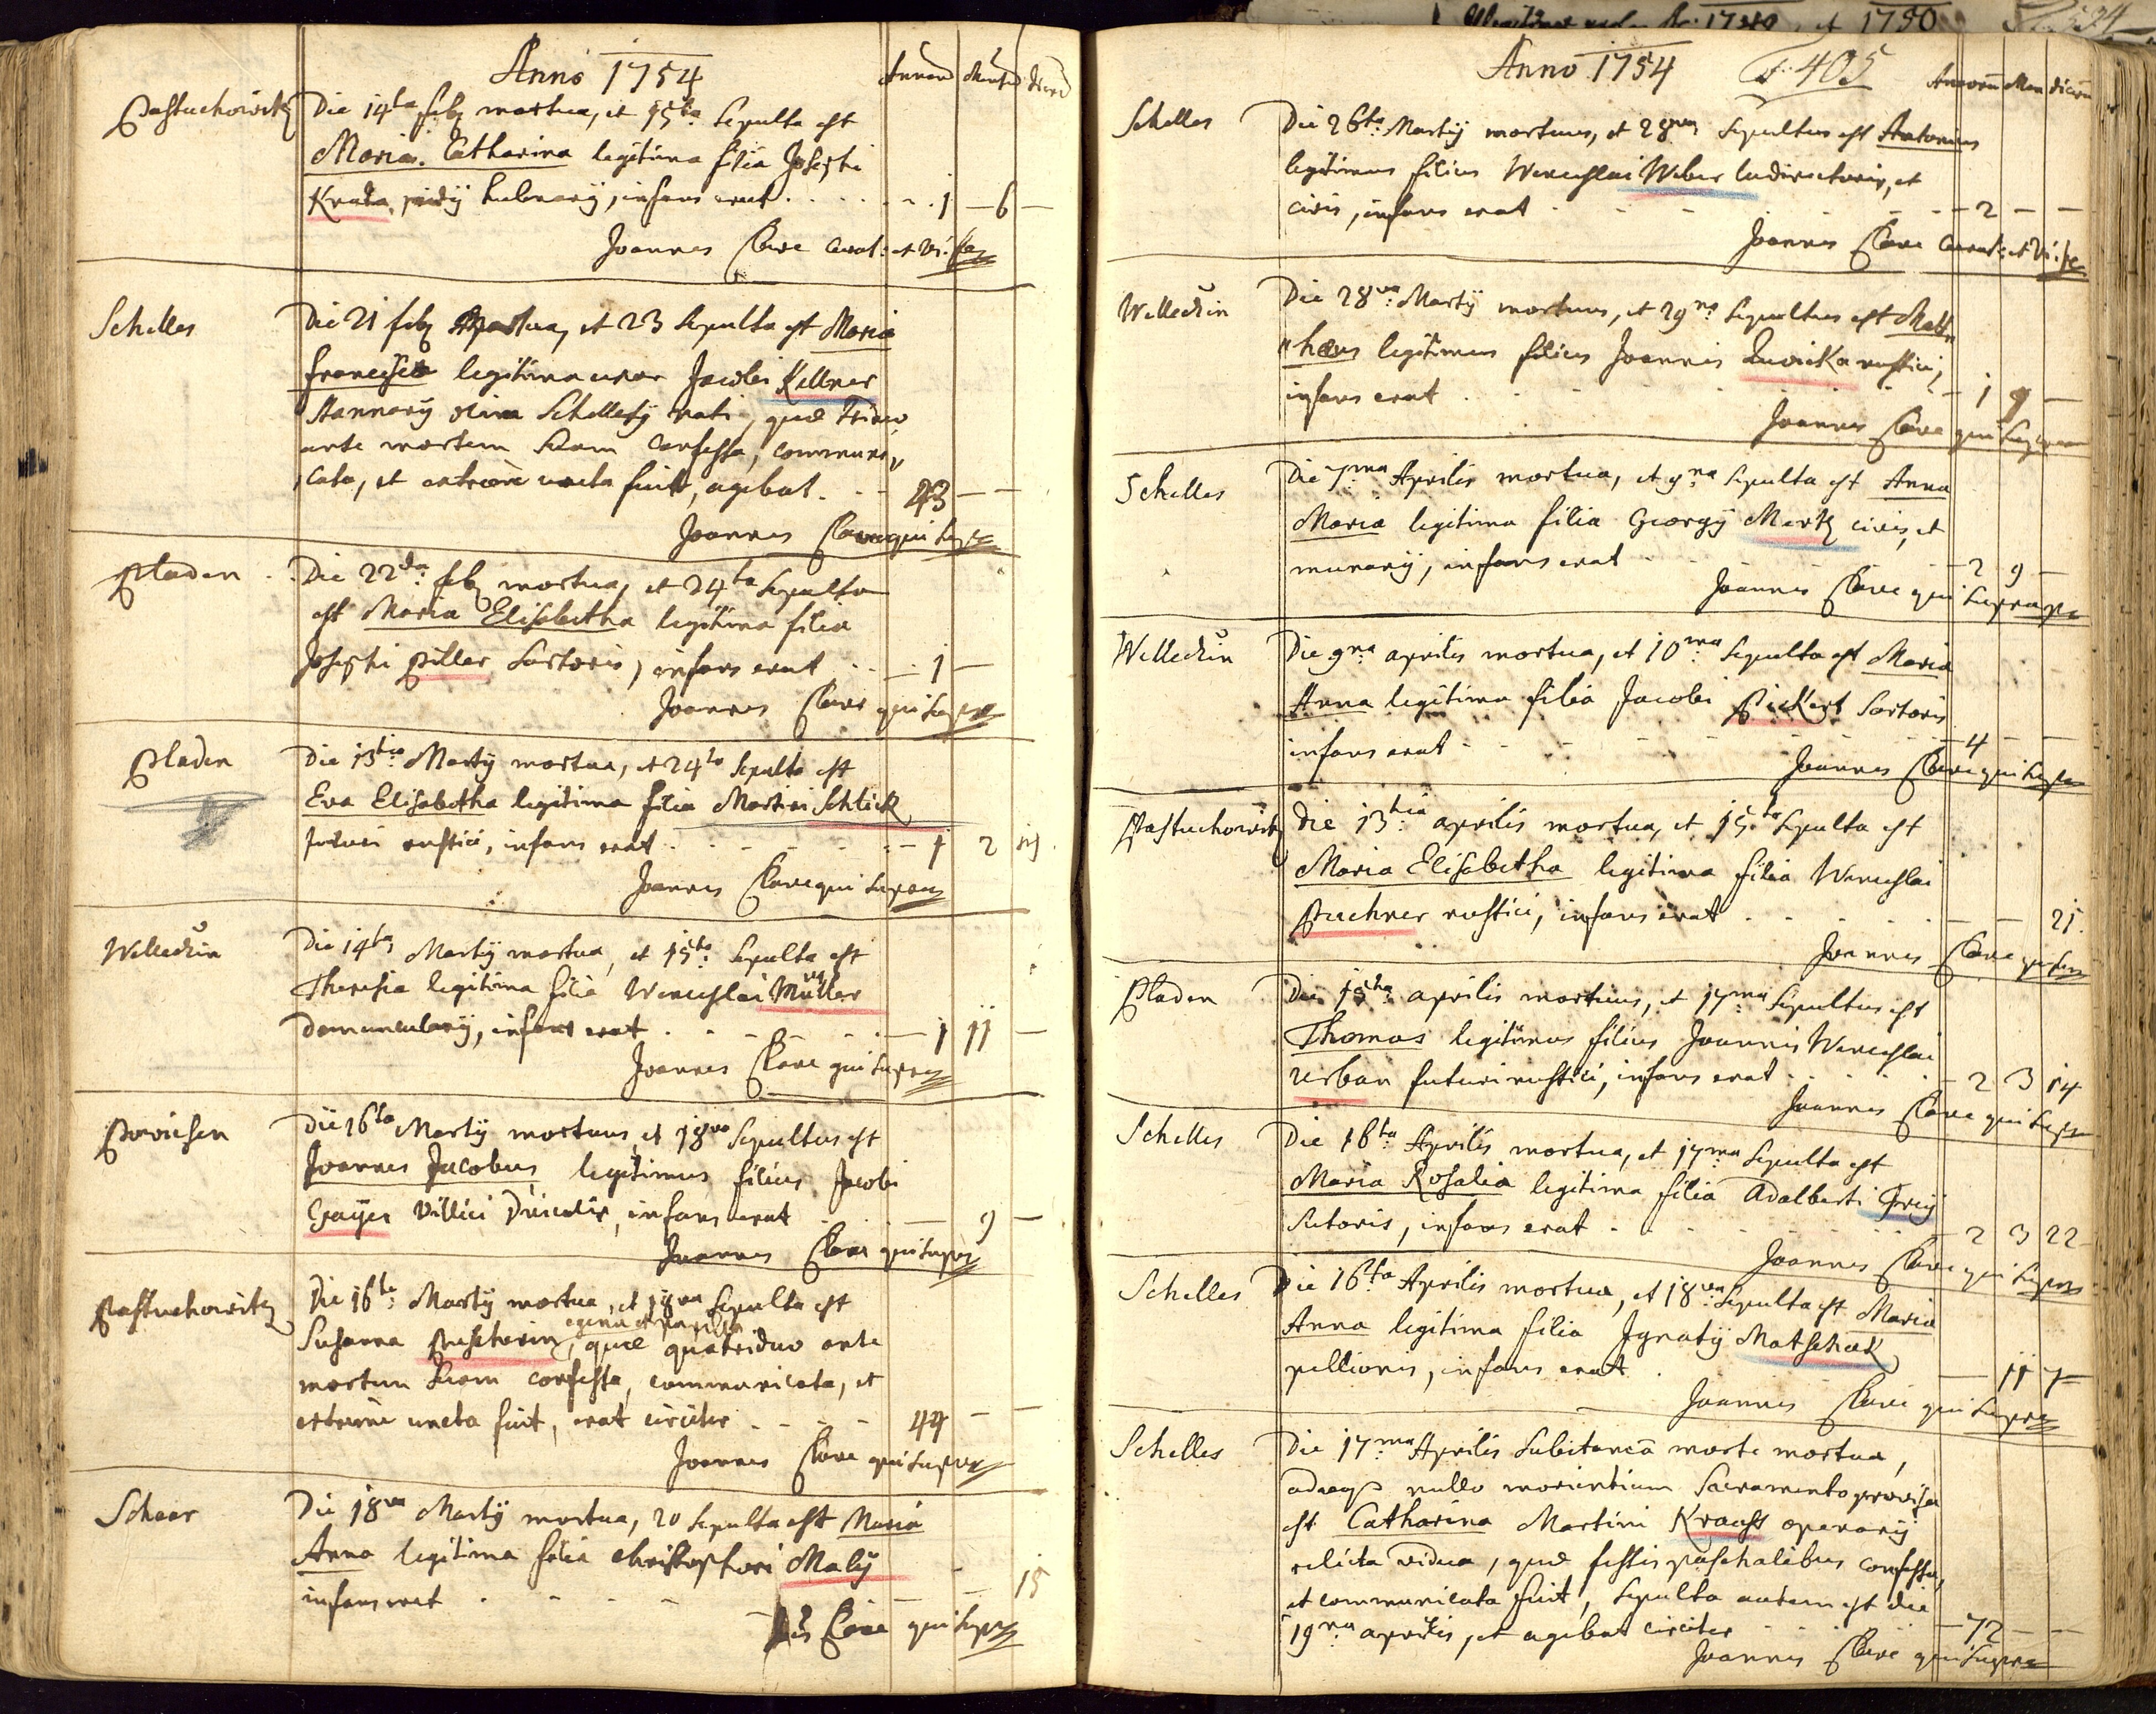 Anno 1754
Annorū Mensiū Dierū
Pastuchowitz Die 14ta feb mortua, et 15ta Sepulta est
Maria Catharina legitima filia Josephi
Kruta, hulnarij, infans erat 1 — 6 —
Joannes Clave Curat: et
Schelles Die 21 feb mortua, et 23 Sepulta est Maria
Francisca legitima uxor Jacobi Kellner
Stannarij olim Schellesij nati, quæ triduo
ante mortem suam confessa, communi„
„cata, et extreme uncta fuit, agebat 43 — —
Joannes Clave qui supra
Pladen Die 22da feb mortua, et 24ta Sepulta
est Maria Elisabetha legitima filia
Josephi Piller Sartoris, infans erat — 1 —
Joannes Clave qui supra
Pladen Die 13tia Martij mortua, et 24ta Sepulta est
Eva Elisabetha legitima filia Martini Schlick
futuri rustici, infans erat 1 2
Joannes Clave qui supra
Welleczin Die 14ta Martij mortua, et 15ta Sepulta est
Theresia legitima filia Wenceslai Müller
Domuncularij, infans erat — 1 11 —
Joannes Clave qui supra
Die 16ta Martij mortuus, et 18va Sepultus est
Joannes Jacobus legitimus filius Jacobi
Gayer Villici infans erat — 9 —
Joannes Clave qui supra
Pastuchowitz Die 16ta Martij mortua, et 18va Sepulta est
egena et
Susanna quæ quatriduo ante
mortem suam confessa, communicata, et
extreme uncta fuit, erat circiter 44 — —
Joannes Clave qui supra
Scheer Die 18va Martij mortua, 20 Sepulta est Maria
Anna legitima filia Christophori Malÿ
infans erat — — 15
Clave qui supra
1740, et 1750
Anno 1754 405
Annorū Men Dierū
Schelles Die 26ta Martij mortuus, et 28va Sepultus est Antonius
legitimus filius Wenceslai Weber ludirectoris, et
civis, infans erat — 2 — —
Joannes Clave Curat: et
Welleczin Die 28va Martij mortuus, et 29na Sepultus est Matt„
„hæus legitimus filius Joannis rustici,
infans erat — 1 9 —
Joannes Clave qui supra
Schelles Die 7ma Aprilis mortua, et 9na Sepulta est Anna
Maria legitima filia Georgij Mertz civis, et
murarij, infans erat — 2 9 —
Joannes Clave qui supra
Welleczin Die 9na aprilis mortua, et 10ma Sepulta est Maria
Anna legitima filia Jacobi Pickert Sartoris
infans erat — 4 — —
Joannes Clave qui supra
Pastuchowitz Die 13tia aprilis mortua, et 15ta Sepulta est
Maria Elisabetha legitima filia Wenceslai
Puchner rustici, infans erat — — 21
Joannes Clave qui supra
Pladen Die 15ta aprilis mortuus, et 17ma Sepultus est
Thomas legitimus filius Joannis Wenceslai
Urban futuri rustici, infans erat — 2 3 14
Joannes Clave qui supra
Schelles Die 16ta Aprilis mortua, et 17ma Sepulta est
Maria Rosalia legitima filia Adalberti
Sutoris, infans erat — 2 3 22
Joannes Clave qui supra
Schelles Die 16ta Aprilis mortua, et 18va Sepulta est Maria
Anna legitima filia Ignatij Matschak
pellionis, infans erat — 11 7
Joannes Clave qui supra
Schelles Die 17ma Aprilis Subitanea morte mortua,
adeoq nullo morientium Sacramento provisa
est Catharina Martini Krauss operarij
relicta vidua, quæ festis paschalibus confessa,
et communicata fuit, Sepulta autem est die
19na aprilis, et agebat circiter — 72 — —
Joannes Clave qui supra